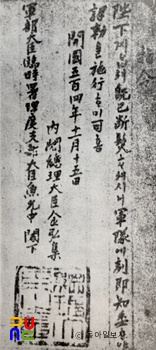 陛下게압셔旣已斷髮ᄒᆞ셰시니軍隊에別即知委ᄒᆞ야
詔勅을施行ᄒᆞ미可喜
開國五百四年十一月十五日
內閣總理大臣金弘集
軍部大臣臨時署理度支部大臣魚允中 閣下
©동아일보